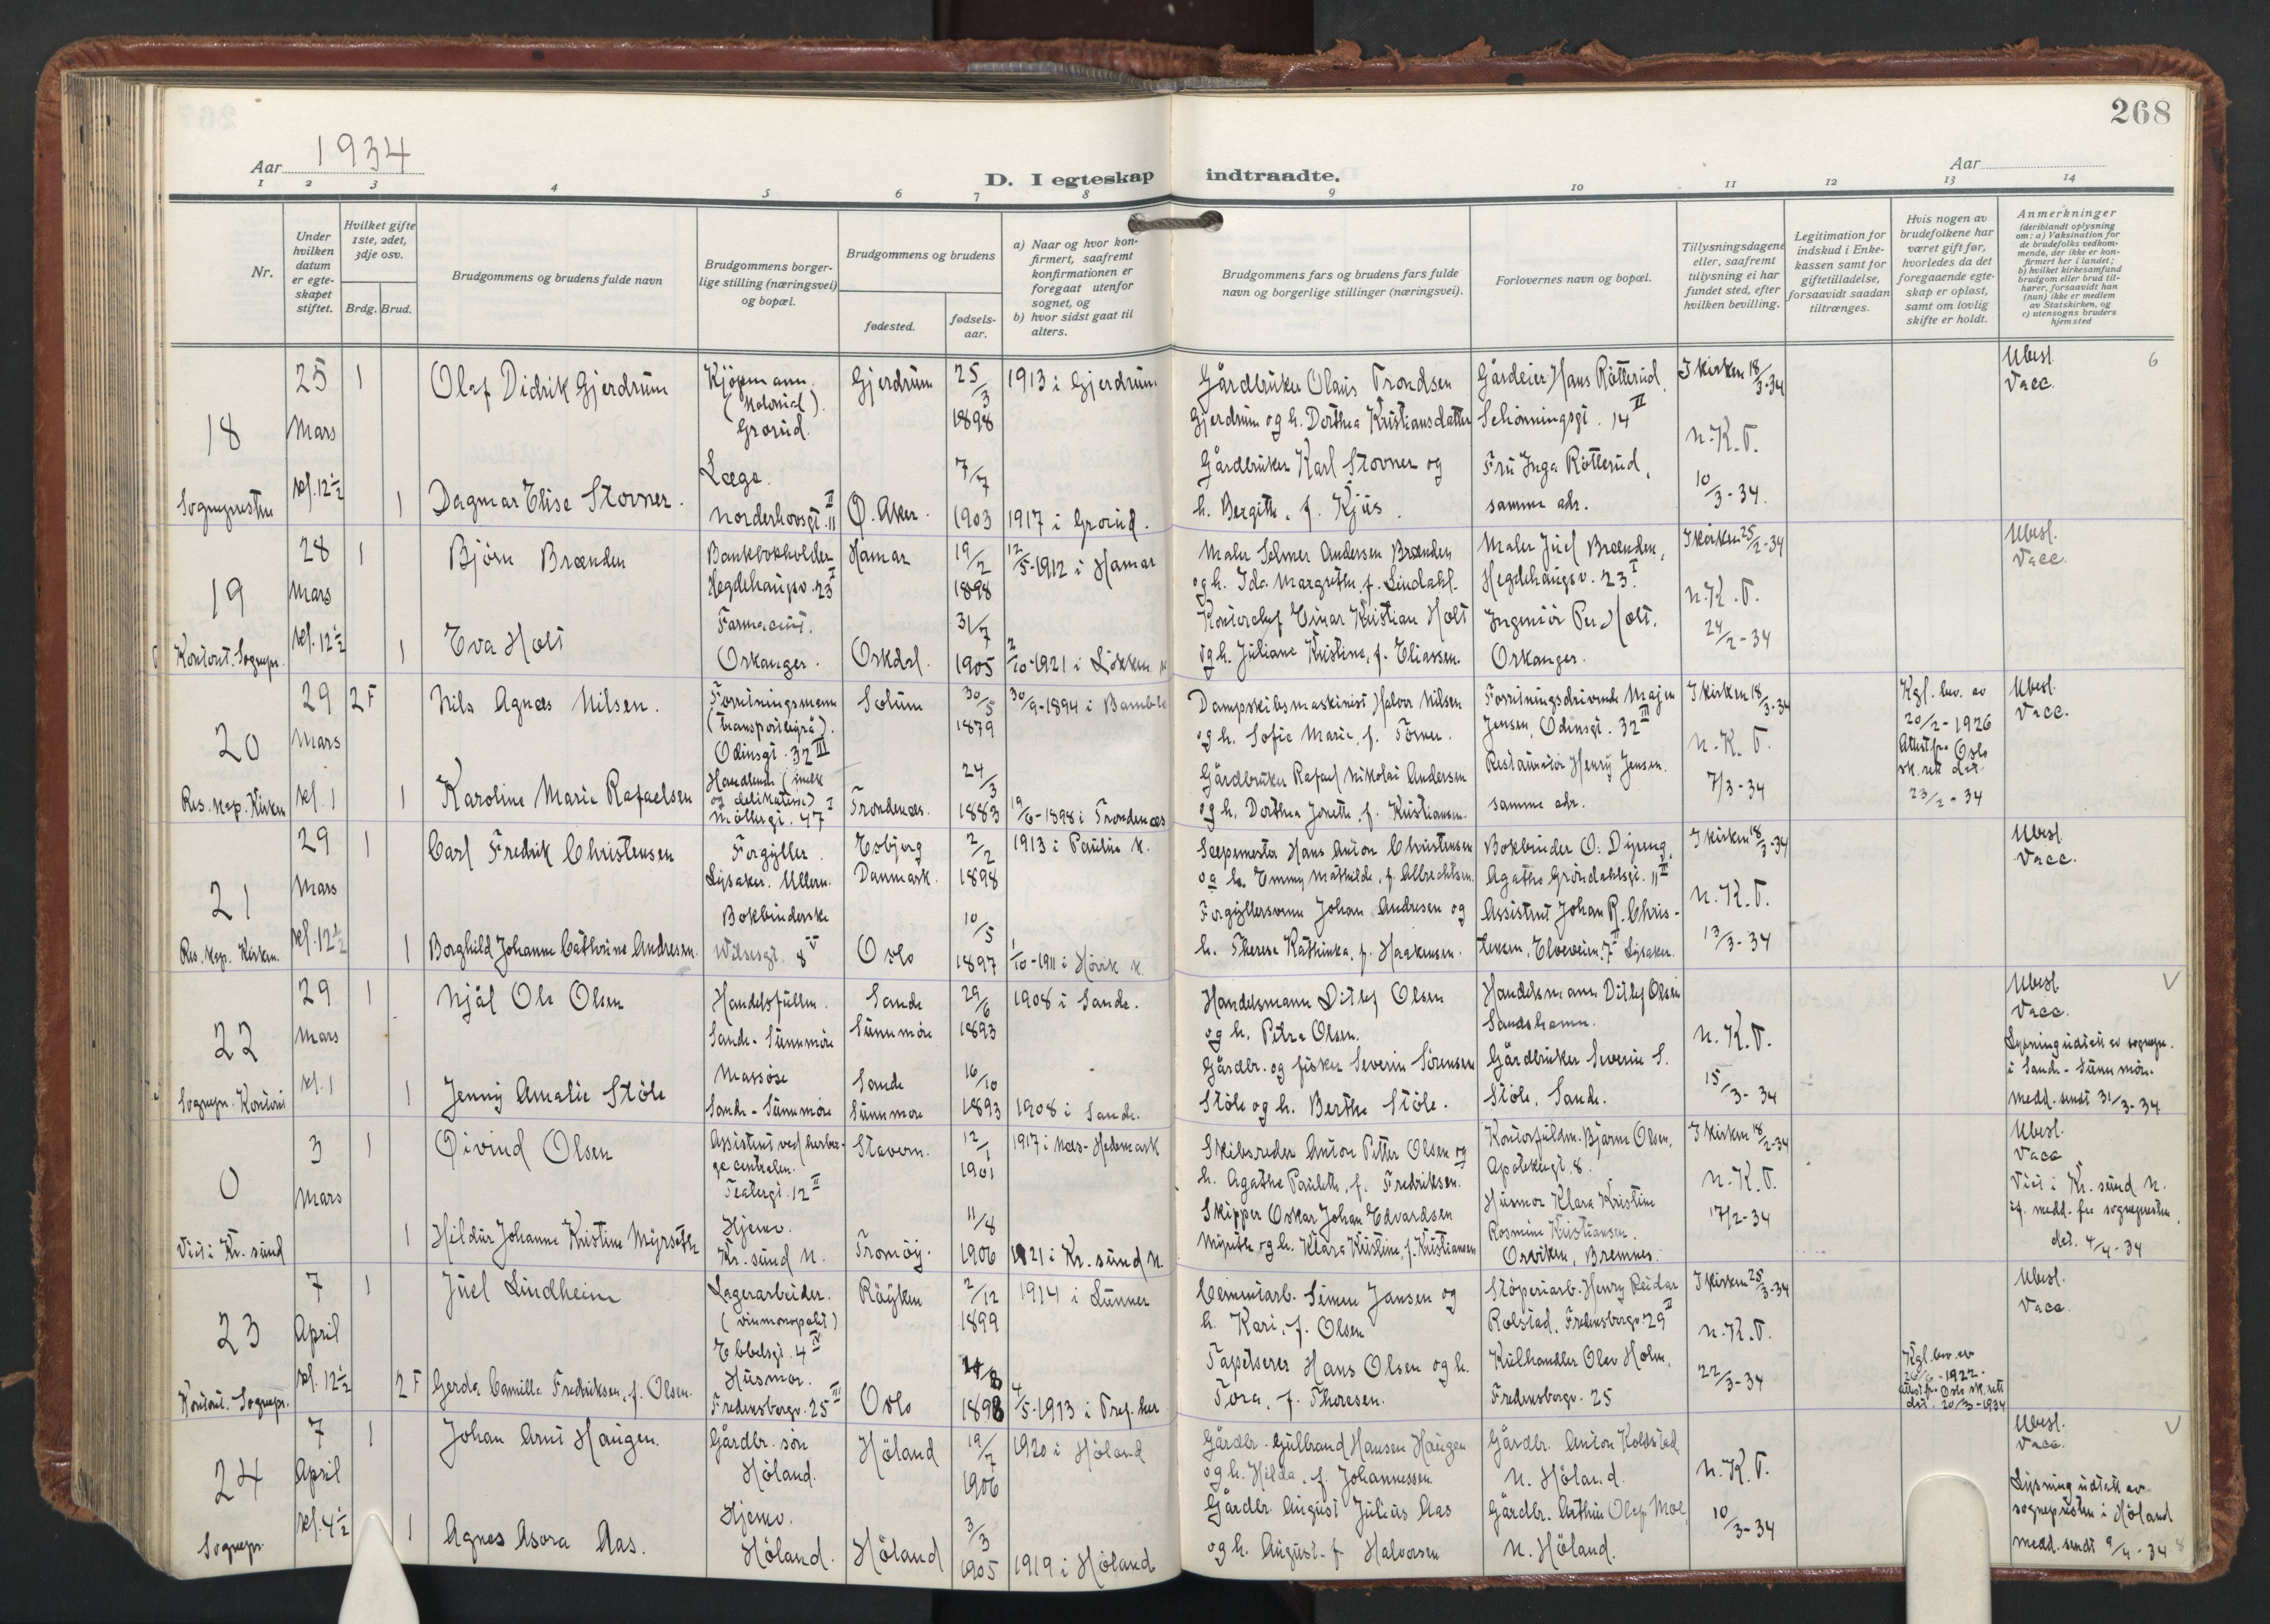 268
Aar 1934
Aar
D. I egteskap indtraadte.
1 2 3 4 5 6 7 8 9 10 11 12 13 14
Nr.
Under hvilken datum er egte-skapet stiftet.
Hvilket gifte 1ste, 2det, 3dje osv.
Brdg. Brud.
Brudgommens og brudens fulde navn
Brudgommens borger-lige stilling (næringsvei) og bopæl.
Brudgommens og brudens
fødested.
fødsels-aar.
a) Naar og hvor kon-firmert, saafremt konfirmationen er foregaat utenfor sognet, og
b) hvor sidst gaat til alters.
Brudgommens fars og brudens fars fulde navn og borgerlige stillinger (næringsvei).
Forlovernes navn og bopæl.
Tillysningsdagene eller, saafremt tillysning ei har fundet sted, efter hvilken bevilling.
Legitimation for indskud i Enke-kassen samt for giftetilladelse, forsaavidt saadan tiltrænges.
Hvis nogen av brudefolkene har været gift før, hvorledes da det foregaaende egte-skap er opløst, samt om lovlig skifte er holdt.
Anmerkninger
(deriblandt oplysning om: a) Vaksination for de brudefolks vedkom-mende, der ikke er kon-firmert her i landet;
b) hvilket kirkesamfund brudgom eller brud til-hører, forsaavidt han (hun) ikke er medlem av Statskirken, og
c) utensogns bruders hjemsted
18
25 Mars kl. 12½
Sognepresten
1
Olaf Didrik Gjerdrum
Kjöpmann (kolonial). Grorud.
Gjerdrum
25/3 1898
1913 i Gjerdrum
Gårdbruker Olaus Trondsen
Gjerdrum og h. Dorthea Kristiansdatter
Gårdeier Hans Rötterud,
Schönningsgt. 14 II
I kirken 18/3-34
n.K.T.
10/3-34.
Ubesl.
Vacc.
6
1
Dagmar Elise Stovner.
Læge.
Norderhovsgt. 11 II
Ö. Aker.
7/7 1903
1917 i Grorud.
Gårdbruker Karl Stovner og
h. Bergitte, f. Kjus.
Fru Inga Rötterud,
samme adr.
19
28 Mars kl. 12½
Kontoret. Sognepr.
1
Björn Brænden
Bankbokholder
Hegdehaugsv. 23 I
Hamar
19/2 1898
12/5-1912 i Hamar
Maler Selmer Andersen Brænden
og h. Ida Margrethe, f. Lindahl.
Maler Juel Brænden,
Hegdehaugsv. 23 I
I kirken 25/2-34
n.K.T.
24/2-34
Ubesl.
Vacc.
1
Eva Holt
Farmaceut.
Orkanger.
Orkdal.
31/7 1905
2/10-1921 i Lökken
Kontorchef Einar Kristian Holt
og h. Juliane Kristine, f. Eliassen.
Ingeniör Per Holt.
Orkanger.
20
29 Mars kl. 1
Res. kap. Kirken
2 F
Nils Agnæs Nilsen.
Forretningsmann
(transportbyrå).
Odinsgt. 32 III
Solum
30/5 1879
30/9-1894 i Bamble
Dampskibsmaskinist Halvor Nilsen
og h. Sofie Marie, f. Törner.
Forretningsdrivende Majen
Jensen, Odinsgt. 32 III
I kirken 18/3-34
n.K.T.
7/3-34
Kgl. bev. av
20/2-1926
Attest fra Oslo
sk.rett dat.
23/2-34
Ubesl.
Vacc.
1
Karoline Marie Rafaelsen
Handlende (melk
og delikatesse)
Möllergt. 47 I
Trondenæs.
24/3 1883
19/6-1898 i Trondenæs
Gårdbruker Rafael Nikolai Andersen
og h. Dorthea Josette, f. Kristiansen.
Restauratör Henry Jensen.
samme adr.
21
29 Mars kl. 12½
Res. kap. Kirken.
1
Carl Fredrik Christensen
Forgyller.
Lysaker. Ullern.
Esbjerg
Danmark.
2/2 1898
1913 i Paulus k.
Seepemester Hans Anton Christensen
og h. Emmy Mathilde, f. Albrechtsen.
Bokbinder O. Dyreng,
Agathe Gröndahlsgt. 11 II
I kirken 18/3-34
n.K.T.
13/3-34
Ubesl.
Vacc.
1
Borghild Johanne Cathrine Andresen.
Bokbinderske
Wilsesgt. 8 V
Oslo
10/5 1897
1/10-1911 i Hövik k.
Forgyllersvenn Johan Andresen og
h. Therese Kathinka, f. Haakensen.
Assistent Johan R. Chris-
tensen, Elveveien 7 II Lysaker.
22
29 Mars kl. 1
Sognepr. Kontoret
1
Njål Ole Olsen
Handelsfullm.
Sande - Sunnmöre
Sande
Sunnmöre
29/6 1893
1908 i Sande.
Handelsmann Ditlef Olsen
og h. Petra Olsen.
Handelsmann Ditlef Olsen
Sandshamn.
n.K.T.
15/3-34
Ubesl.
Vacc.
Lysning udstedt av sognepr.
i Sande - Sunnmöre.
medd. sendt 31/3-34
V
1
Jenny Amalie Stöle
Massöse
Sande - Sunnmöre
Sande
Sunnmore
16/10 1893
1908 i Sande.
Gårdbr. og fisker Severin Sörensen
Stöle og h. Berthe Stöle.
Gårdbruker Severin S.
Stöle, Sande.
0
3 Mars
Viet i Kr. sund
1
Öivind Olsen
Assistent ved herber-
gecentralen.
Teatergt. 12 II
Stavern.
12/1 1901
1917 i Næs - Hedemark
Skibsreder Anton Petter Olsen og
h. Agathe Paulette, f. Fredriksen.
Kontorfullm. Bjarne Olsen,
Apotekergt. 8.
I kirken 18/2-34
n.K.T.
17/2-34
Ubesl.
Vacc
Viet i Kr. sund N.
if. medd. fra sognepresten,
dat. 4/4-34
1
Hildur Johanne Kristine Myrseth
Hjemv.
Kr. sund N.
Tromöy.
11/8 1906
1921 i Kr. sund N.
Skipper Oskar Johan Edvardsen
Myrseth og h. Klara Kristine, f. Kristiansen
Husmor Klara Kristine
Rosmine Kristiansen.
Orviken, Bremnes.
23
7 April kl. 12½
Kontoret. Sognepr.
1
Juel Lindheim
Lagerarbeider.
(vinmonopolet)
Ebbelsgt. 4 IV
Röyken
2/12 1899
1914 i Lunner
Cementarb. Simen Jansen og
h. Kari, f. Olsen
Stöperiarb. Henry Reidar
Rolstad, Fredensborgv. 29 II
I kirken 25/3-34
n.K.T.
22/3-34
Ubesl.
Vacc.
2 F
Gerda Camilla Fredriksen, f. Olsen.
Husmor.
Fredensborgv. 25 III
Oslo
1898
4/5-1913 i Tref. her
Tapetserer Hans Olsen og h.
Tora, f. Thoresen.
Kulhandler Olav Holm,
Fredensborgv. 25
Kgl. bev. av
26/6-1922.
attest fra Oslo sk.rett
dat. 20/3-1934
24
7 April kl. 4½
Sognepr.
1
Johan Arnt Haugen.
Gårdbr. sön
Höland.
Höland
19/7 1906
1920 i Höland
Gårdbr. Gulbrand Hansen Haugen
og h. Hilda, f. Johannessen.
Gårdbr. Anton Koldstad
N. Höland.
n.K.T.
10/3-34
Ubesl.
Vacc.
Lysning udstedt av
sognepresten i Höland
medd. sendt 9/4-34
V
1
Agnes Asora Aas.
Hjemv.
Höland.
Höland
3/3 1905
1919 i Höland
Gårdbr. August Julius Aas
og h. August. f. Halvorsen
Gårdbr. Arthur Olaf Moe,
N. Höland.